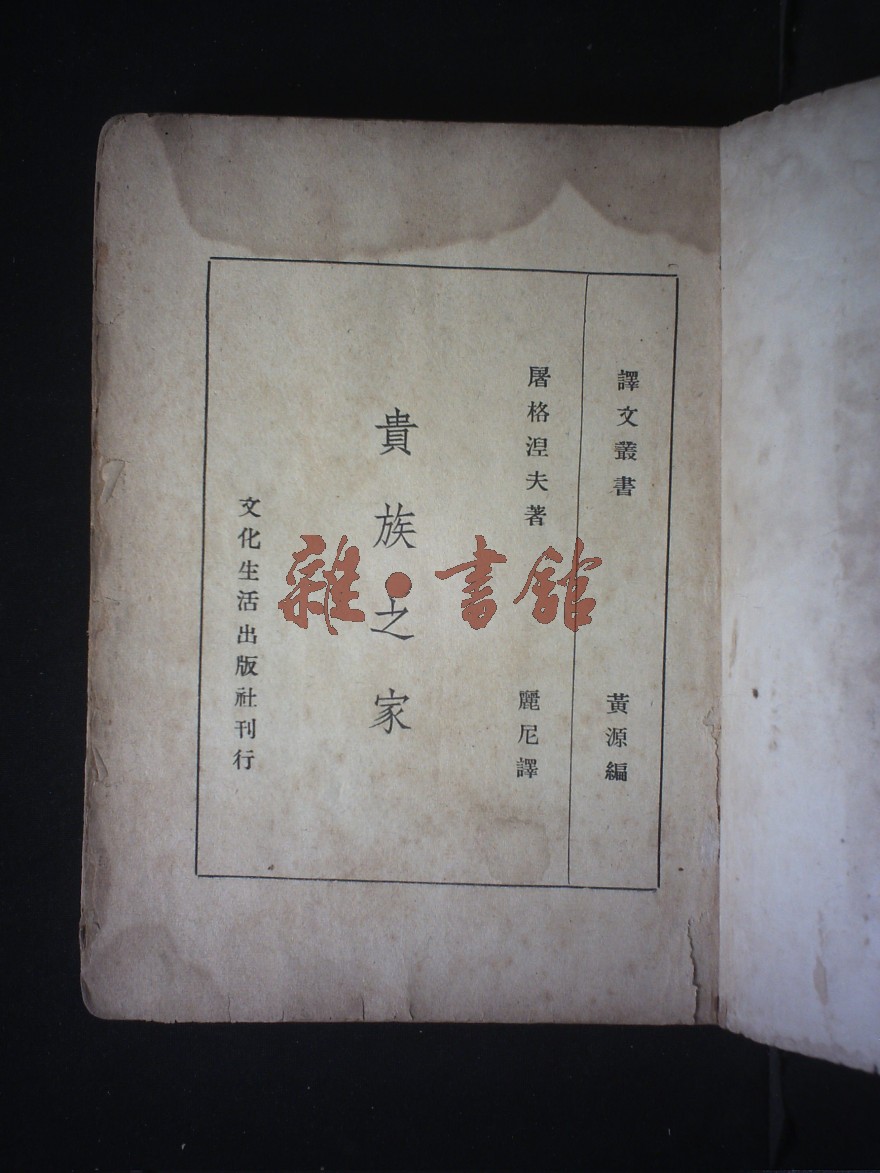 譯文叢書
黃源編
屠格涅夫著
麗尼譯
貴族之家
文化生活出版社刊行
雜·書館